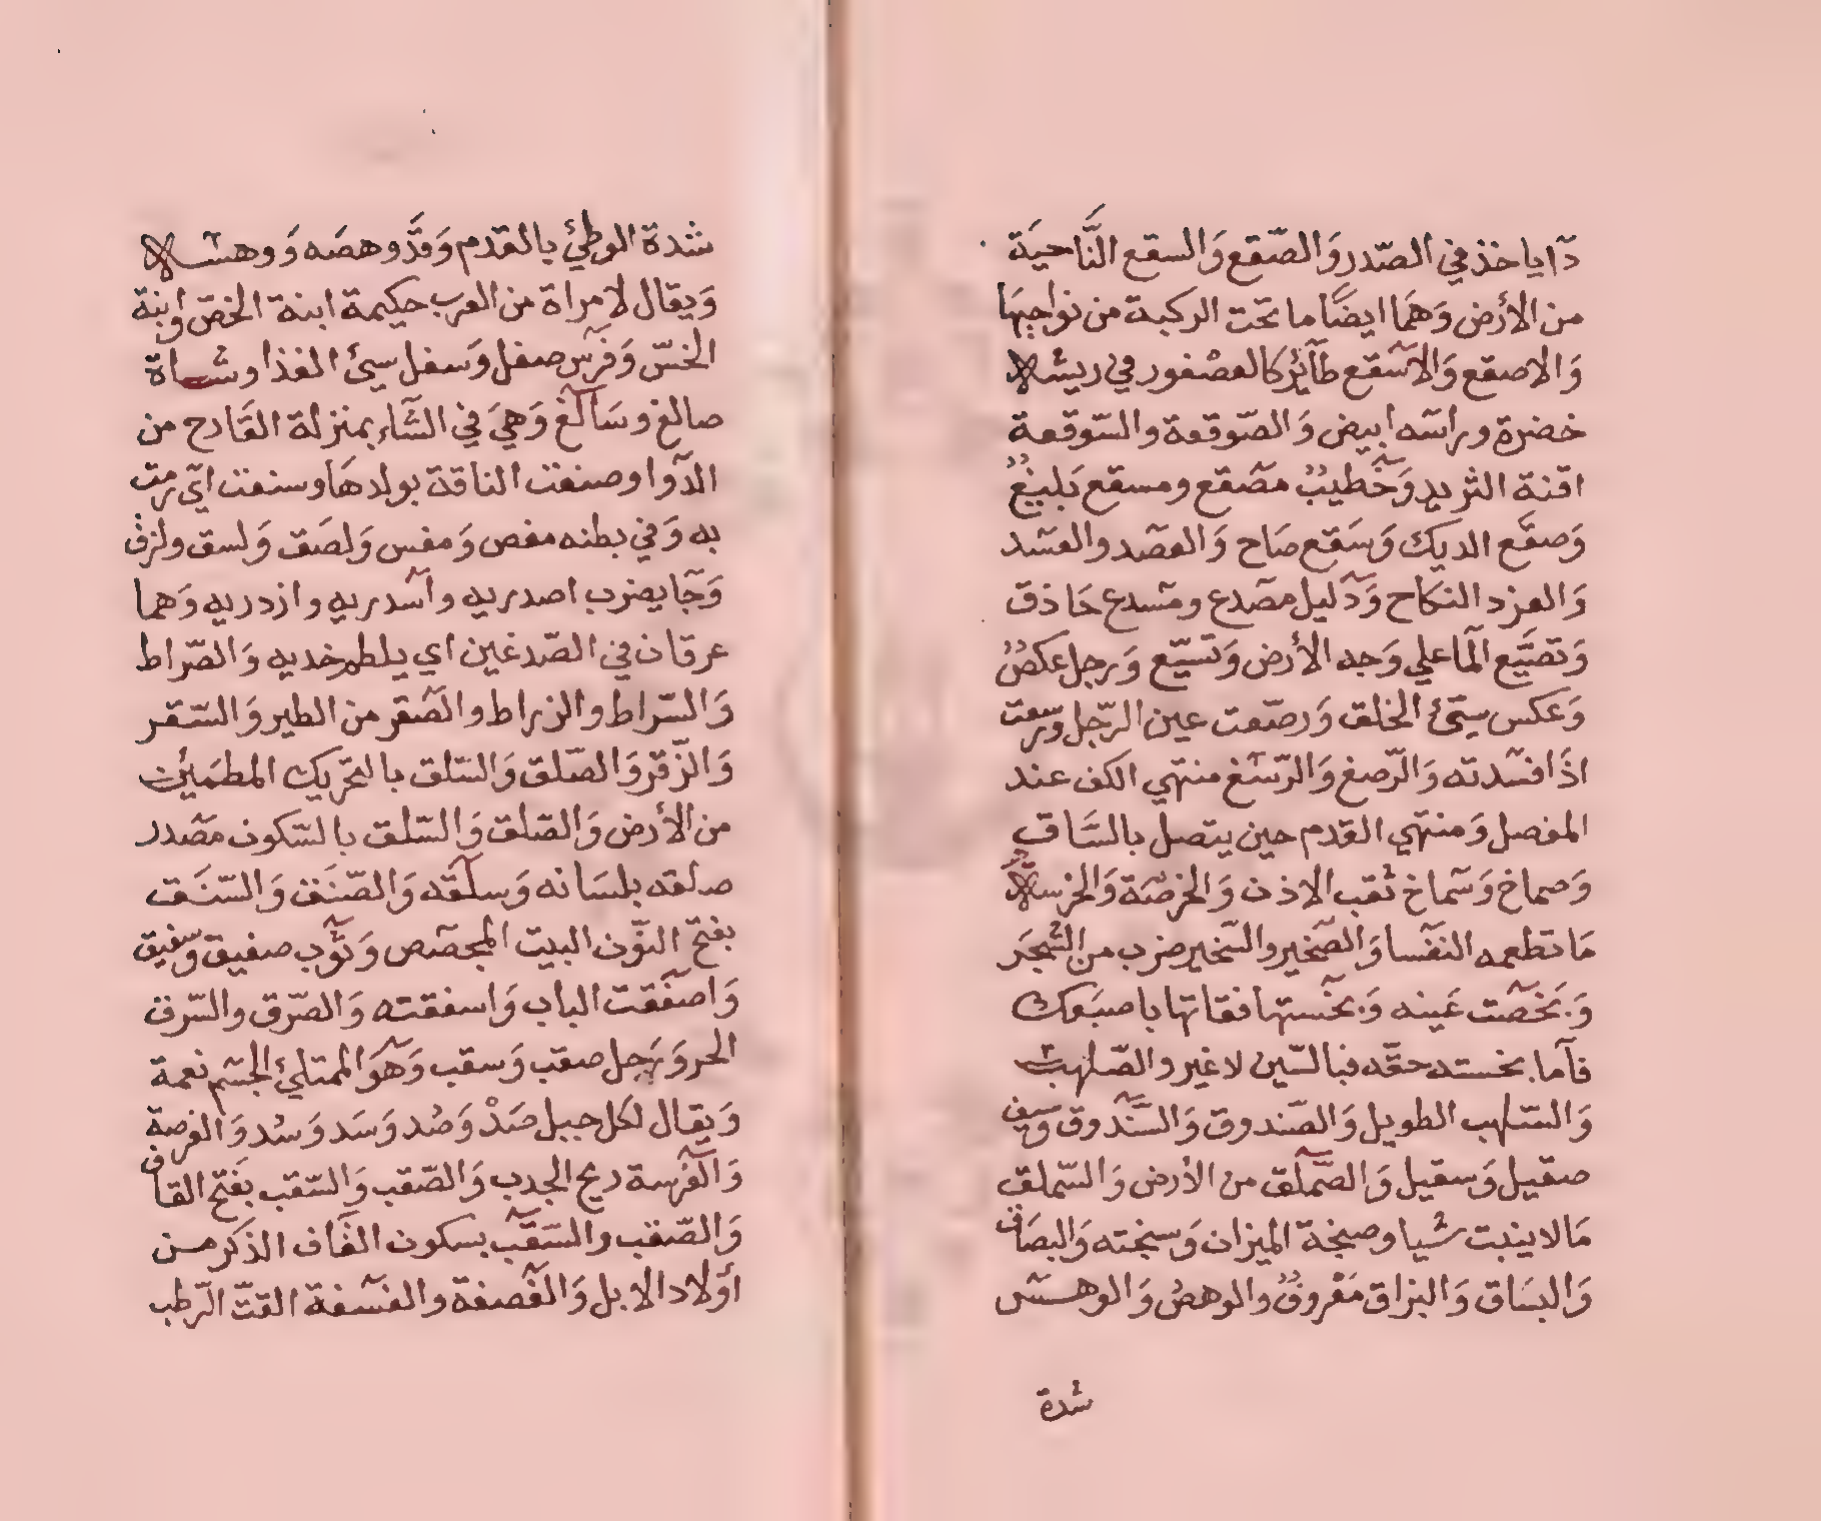 دآ ياخذ في الصّدر وَالصّقع وَالسقع النَّاحيَة
من الأرض وَهَما ايضًا ما تحت الركبة من نواحيهَا
وَالاصقع وَالاسقع طآئِر كالعصْفور في ريشه
خضرة وراسَه ابيض وَالصّوقعة والسّوقعة
اقنة الثريد وَخَطيبٌ مصَقع ومسقع بَليغٌ
وَصقَع الديك وَسَقع صَاح وَالعصَد والعسَد
وَالعزد النكاح وَدَليل مصَدع ومسَدع حَاذق
وَتصَيَّع المآ علي وَجه الأرض وَتسيّع وَرجل عكصٌ
وَعكس سيّئ الخلق وَرصَعت عين الرّجل وَرسعت
اذَا افسَدته وَالرّصغ وَالرّسَغ منتهي الكف عند
المفصل وَمنتهي القدم حين يتصل بالسَّاق
وَصماخ وَسماخ ثقب الاذن وَالخرصَة وَالخرسه
مَا تطعمه النفَسا وَالصَخير والسَخير ضرب من الشجَر
وَبَخصَت عَينه وَبخَستها فقاتها باصبَعك
فآما بخسته حقّه فبالسّين لا غير والصّلهب
وَالسّلهب الطويل وَالصّندوق وَالسَّندوق وَسيف
صقيل وَسقيل وَالصَّملق من الأرض وَالسّملق
مَا لا ينبت شيا وصنجة الميزان وَسنجته وَالبصَاق
وَالبسَاق وَالبزاق مَعْروفٌ والوهصُ وَالوهسَ
شدة
شدة الوطئ بالقدم وَقدَّ وهصَه وَوهسَه
وَيقال لامراة من العرب حكيمة ابنة الخصّ وابنة
الخسّ وَفرَس صغل وَسغل سيئ الغذا وشاة
صالغ وسَالَغ وَهيَ في الشَّاء بمنزلة القَارح من
الدّوا وصنفت الناقة بولدهَا وسنفت ايَ رمَت
به وَفي بطنه مغص وَمغس وَلصَق وَلسق ولزق
وَجَآ يضرب اصدريه واسَدريه وازدريه وَهما
عرقان في الصّدغين اي يلطم خديه وَالصّراط
وَالسّراط والزراط والصَقر من الطير وَالسّقر
وَالزّقر وَالصّلق وَالسّلق بالتحَريك المطمَيئن
من الأرض وَالصّلق وَالسّلق بالسّكون مصَدر
صلقه بلسَانه وَسلَقه وَالصّنَق وَالسّنَق
بفتح النوّن البيت المجصَص وَثوَب صفيق وَسفيق
وَاصفَقت الباب وَاسفقته وَالصّرق والسّرق
الحر وَرَجل صقب وَسقب وَهوَ الممتلئ الجسَم نعمة
وَيقال لكَل جبل صَدْ وَصُد وَسَد وَسُد وَالفرصة
وَالفَرسة ريح الجدب وَالصّقب وَالسّقب بفَتح القاف
وَالصّقب والسّقَب بسكون القَاف الذكَر من
اوَلاد الابل وَالفَصفة والفسَفة القتّ الرّطب